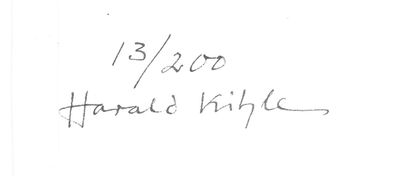 13/200
Harald Kihle